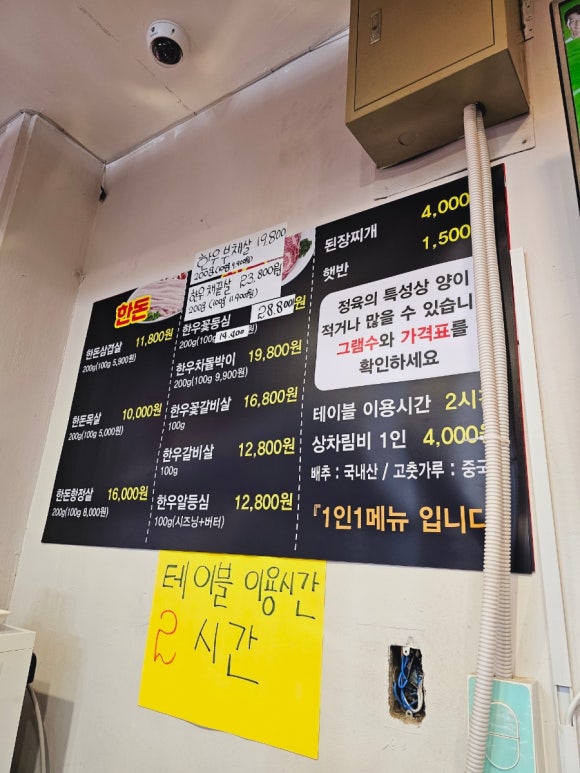 한돈
한돈삼겹살 11,800원
200g(100g 5,900원)
한돈목살 10,000원
200g(100g 5,000원)
한돈항정살 16,000원
200g(100g 8,000원)
한우부채살 19,800
200g(100g 9,900원)
한우채끝살 23,800원
200g(100g 11,900원)
한우꽃등심 28,800원
200g(100g 14,400
한우차돌박이 19,800원
200g(100g 9,900원)
한우꽃갈비살 16,800원
100g
한우갈비살 12,800원
100g
한우알등심 12,800원
100g(시즈닝+버터)
된장찌개 4,000
햇반 1,500
정육의 특성상 양이
적거나 많을 수 있습니
그램수와 가격표를
확인하세요
테이블 이용시간 2시
상차림비 1인 4,000
배추 : 국내산 / 고춧가루 : 중국
『1인1메뉴 입니다
테이블 이용시간
2 시간